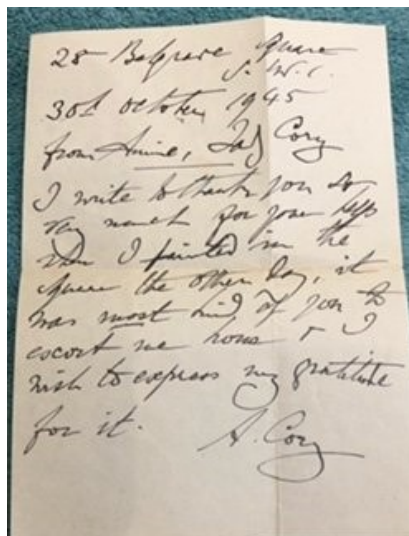 28 Belgrave Square
S.W.1.
30th October, 1945
from Annie, Lady Cory
I write to thank you so
very much for your help
when I fainted in the
Square the other day, it
was most kind of you to
escort me home & I
wish to express my gratitude
for it.
A. Cory